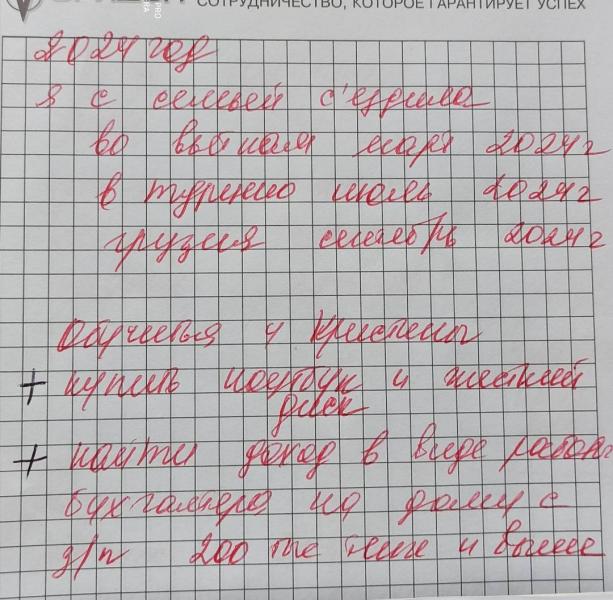 СОТРУДНИЧЕСТВО, КОТОРОЕ ГАРАНТИРУЕТ УСПЕХ
2024 год
я с семьей с'ездила
во вьетнам март 2024 г
в турцию июль 2024 г
грузия сентябрь 2024 г
Обучиться у Кристины
+ купить ноутбук и жесткий
диск
+ найти доход в виде работы
бухгалтера на дому с
з/п 200 тыс тенге и выше